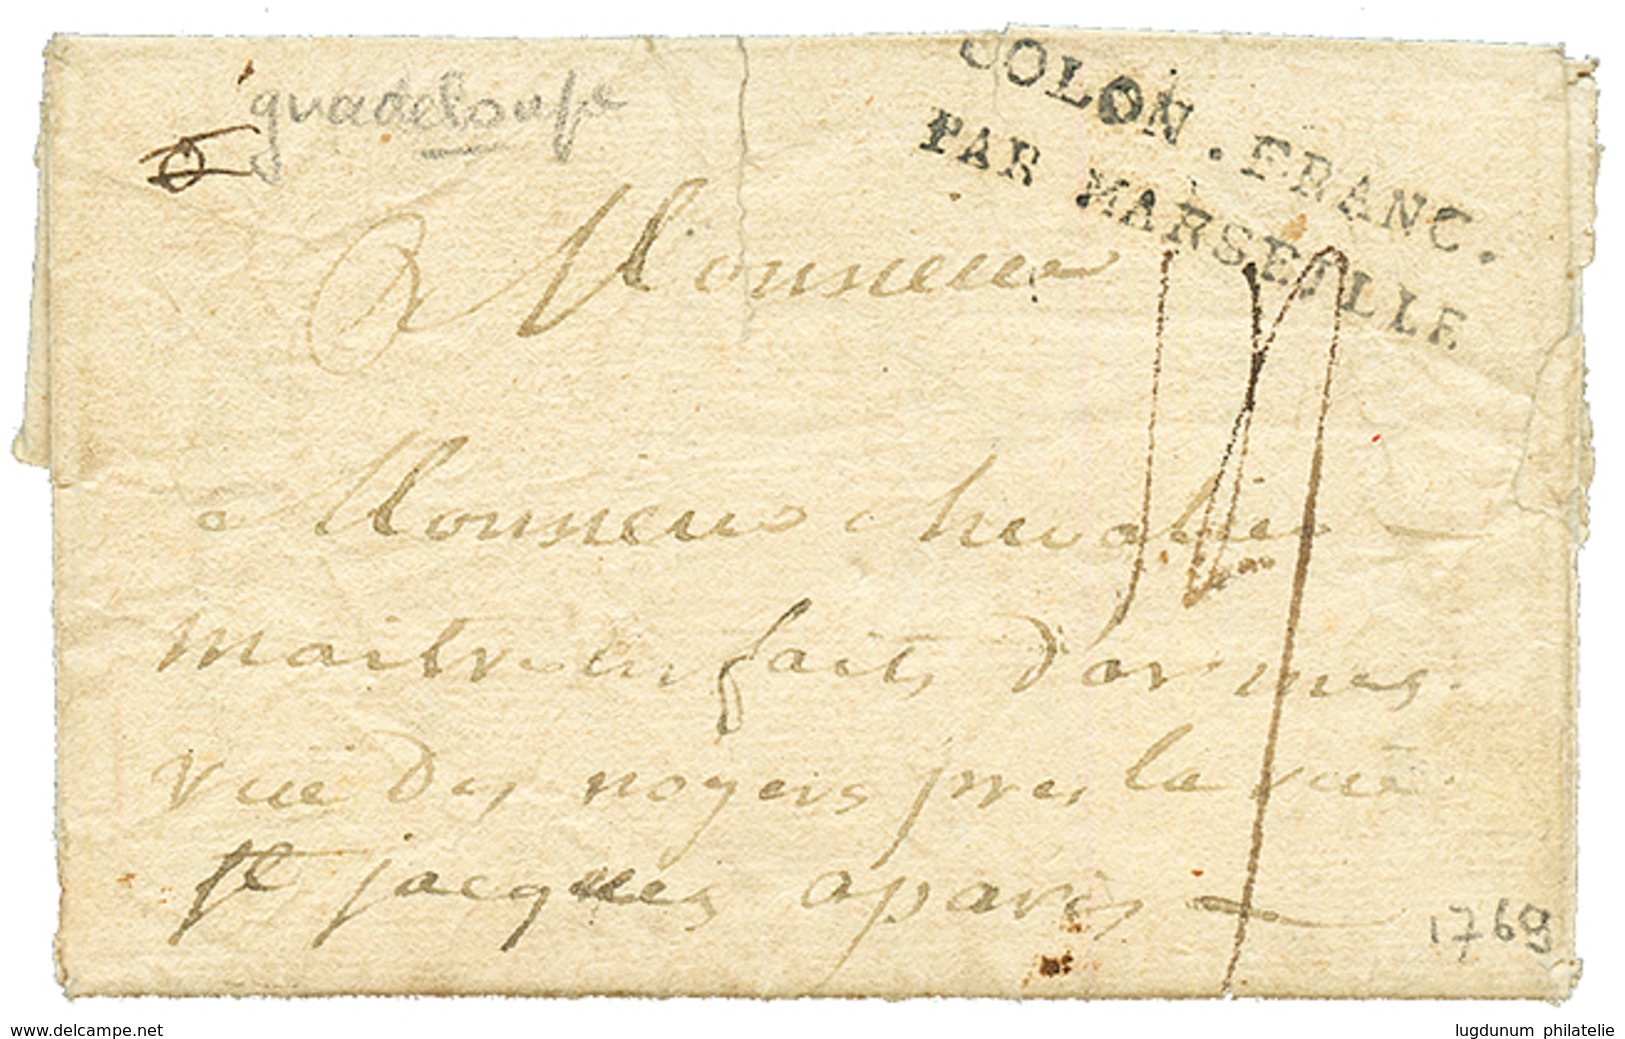 guadeloupe
COLON. FRANC.
PAR MARSEILLE
A Monsieur
a Monsieur chevalier
maitre en faits d'armes
rue des noyers pres la rue
st jacques a paris
1769
www.delcampe.net
lugdunum philatelie